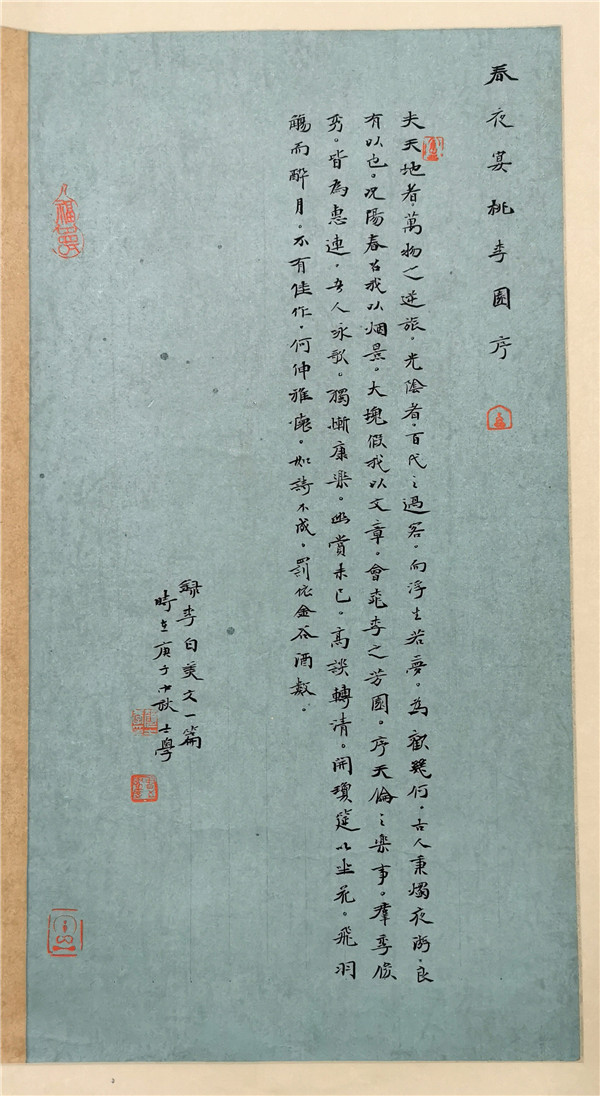 春夜宴桃李園序
夫天地者。萬物之逆旅。光陰者。百代之過客。而浮生若夢。為歡幾何。古人秉燭夜游。良
有以也。况陽春召我以烟景。大塊假我以文章。會桃李之芳園。序天倫之樂事。羣季俊
秀。皆為惠連。吾人詠歌。獨慚康樂。幽賞未已。高談轉清。開瓊筵以坐花。飛羽
觴而醉月。不有佳作。何伸雅懷。如詩不成。罰依金谷酒數。
録李白美文一篇
時在庚子中秋士學